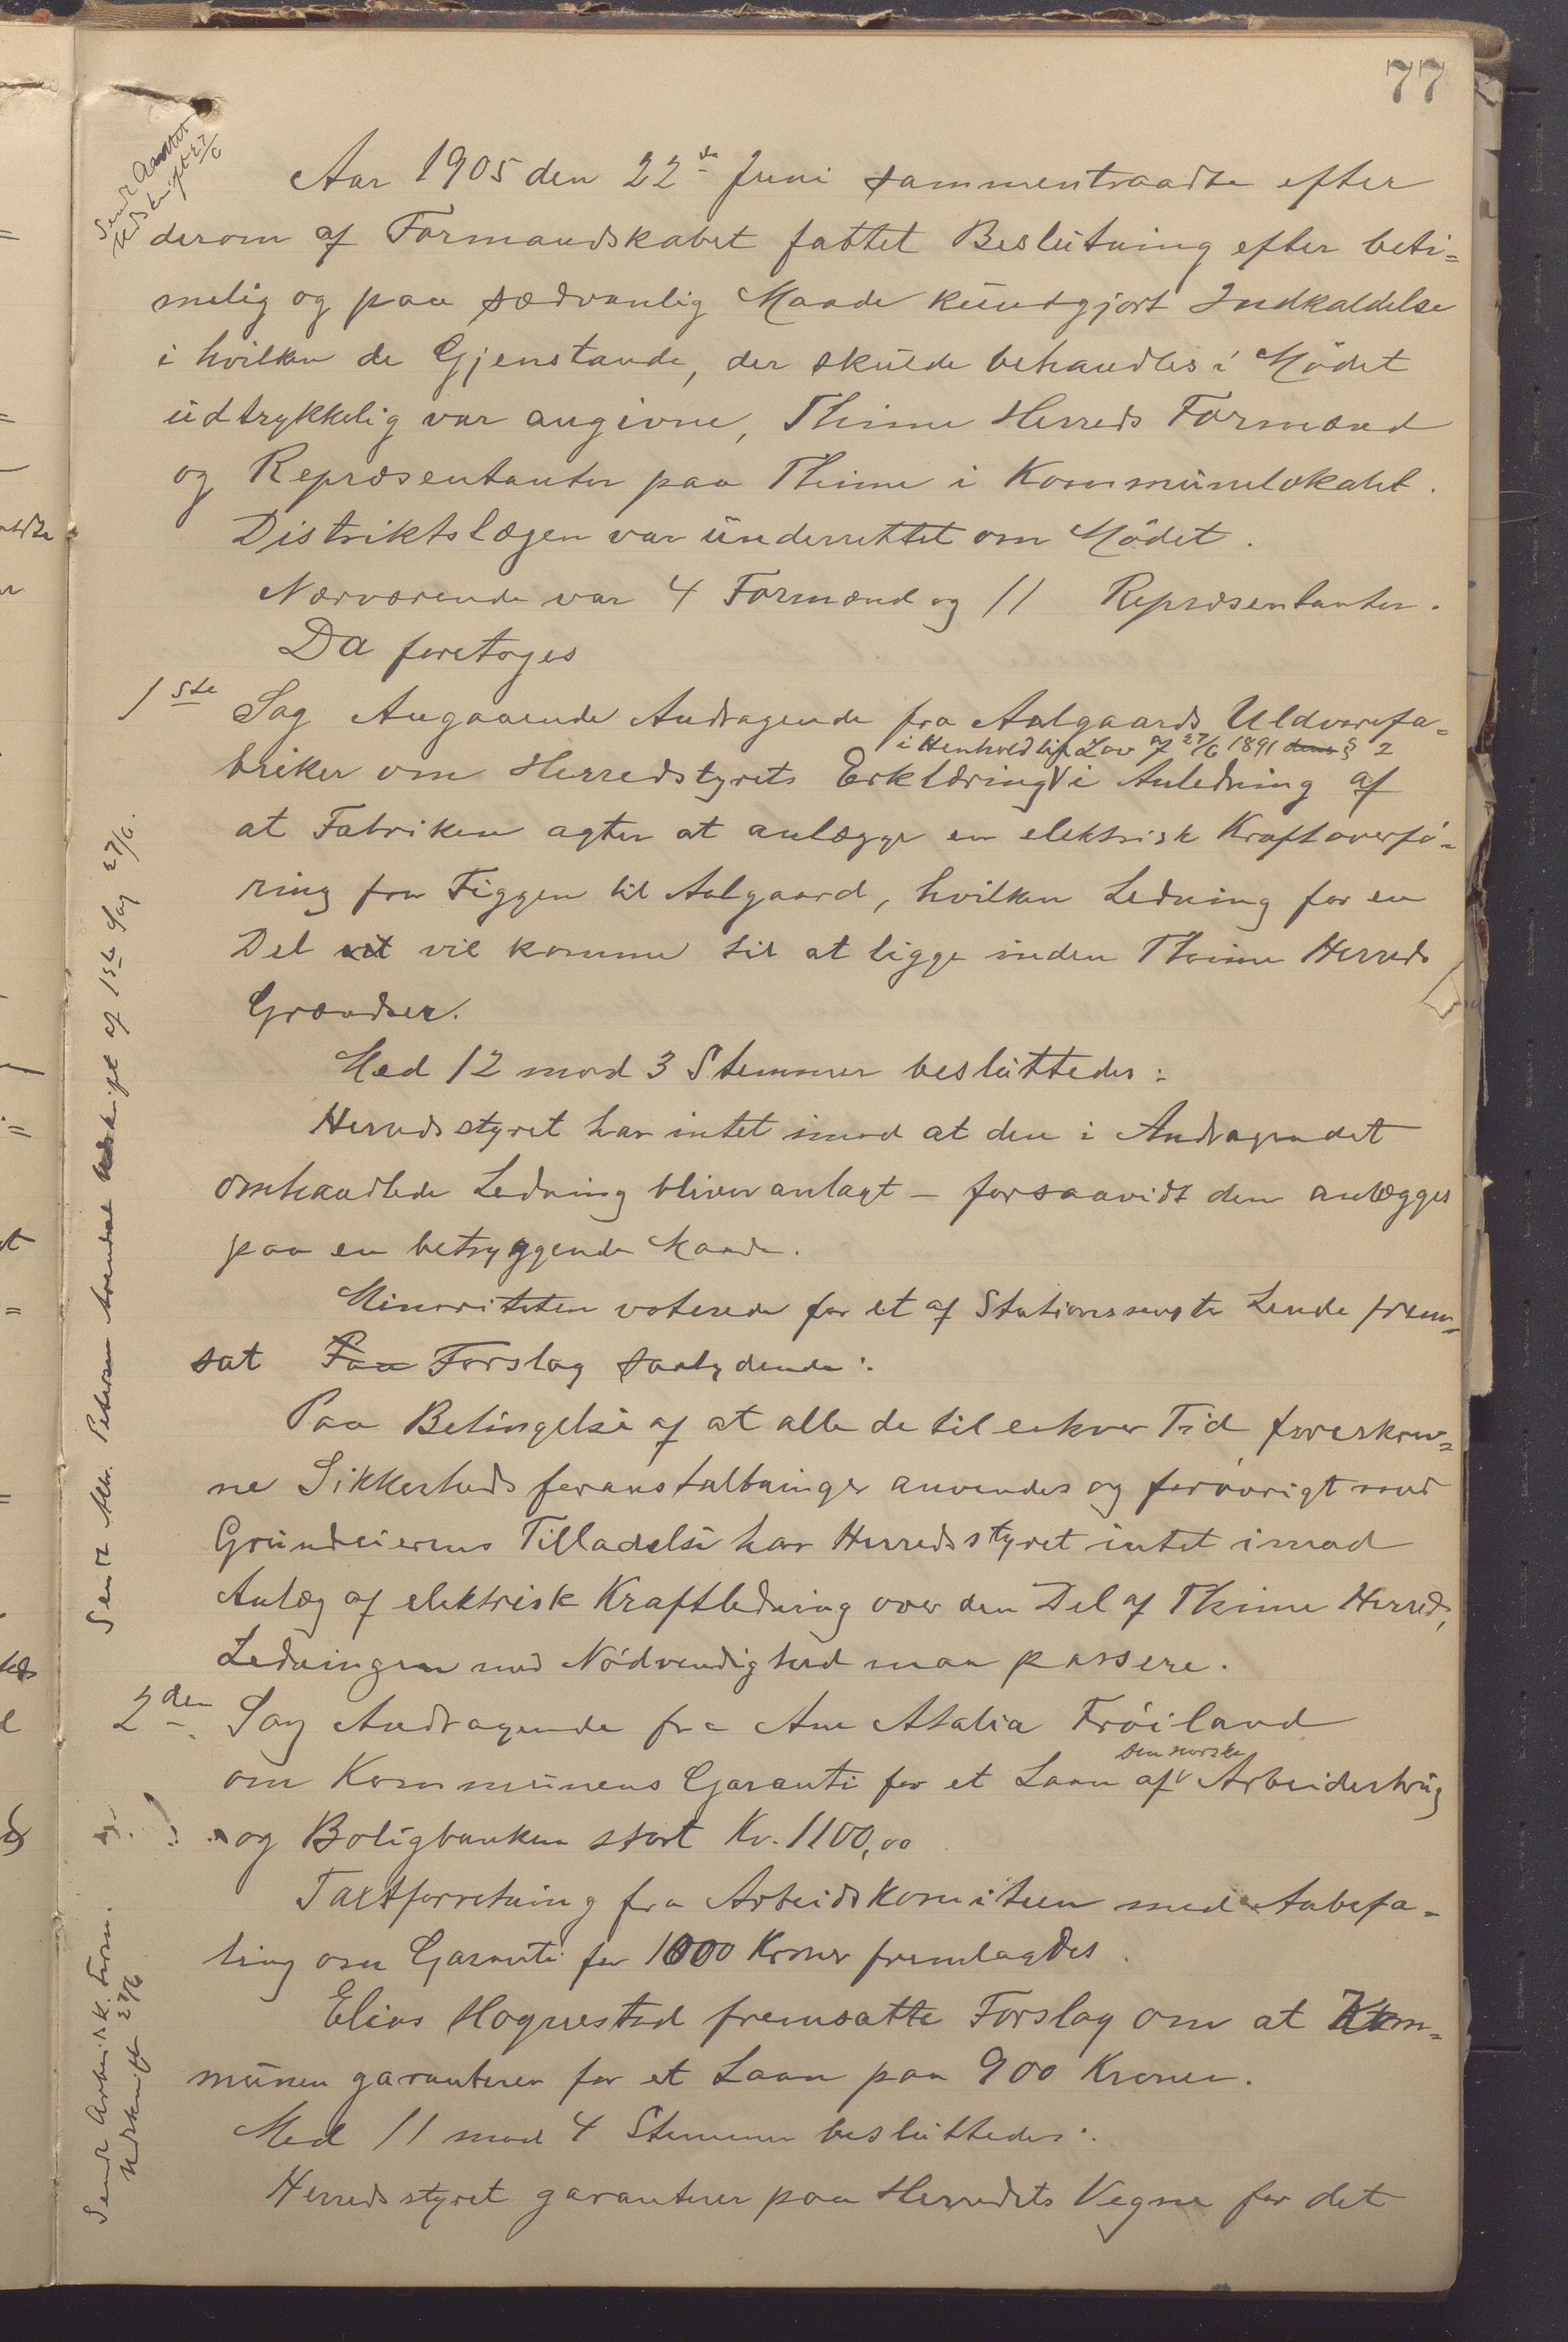 77
Sendt Amtet
Udskrift 27/6
Aar 1905 den 22de Juni sammentraadte efter
derom af Formandskabet fattet Beslutning efter beti=
melig og paa sædvanlig Maade kundgjort Indkaldelse
i hvilken de Gjenstande, der skulde behandles i Mödet
udtrykkelig var angivne, Thime Herreds Formænd
og Repræsentanter paa Thime i Kommunelokalet.
Distriktslægen var underrettet om Mödet.
Nærværende var 4 Formænd og 11 Repræsentanter.
Da foretoges
1ste Sag Angaaende Andragende fra Aalgaards Uldvarefa=
i Henhold til Lov af 27/6 1891 § 2
briker om Herredstyrets Erklæring i Anledning af
at Fabriken agter at anlægge en elektrisk Kraftoverfö=
ring fra Figgen til Aalgaard, hvilken Ledning for en
Del vil komme til at ligge inden Thime Herreds
Grændser.
Med 12 mod 3 Stemmer besluttedes:
Herredsstyret har intet imod at den i Andragendet
omhandlede Ledning bliver anlagt – forsaavidt den anlægges
paa en betryggende Maade.
Minoriteten voterede for et af Lende frem=
sat Paa Forslag saalydende:
Paa Betingelse af at alle de til enhver Tid foreskrev=
ne Sikkerhedsforanstaltninger anvendes og forövrigt med
Grundeierens Tilladelse har Herredsstyret intet imod
Anlæg af elektrisk Kraftledning over den Del af Thime Herred,
Ledningen med Nödvendighed maa passere.
Sendt Udskrift af 1ste Sag 27/6.
2den Sag Andragende fra Ane Atalia Fröiland
den norske
om Kommunens Garanti for et Laan af Arbeiderbrug
og Boligbanken stort Kr. 1100,00
Taxtforretning fra Arbeidskomiteen med Anbefa=
ling om Garanti for 1000 Kroner fremlagdes.
Elias Hognestad fremsatte Forslag om at Kom=
munen garanterer for et Laan paa 900 Kroner.
Med 11 mod 4 Stemmer besluttedes:
Herredsstyret garanterer paa Herredets Vegne for det
Sendt Arbeidsk. Form.
Udskrift 27/6